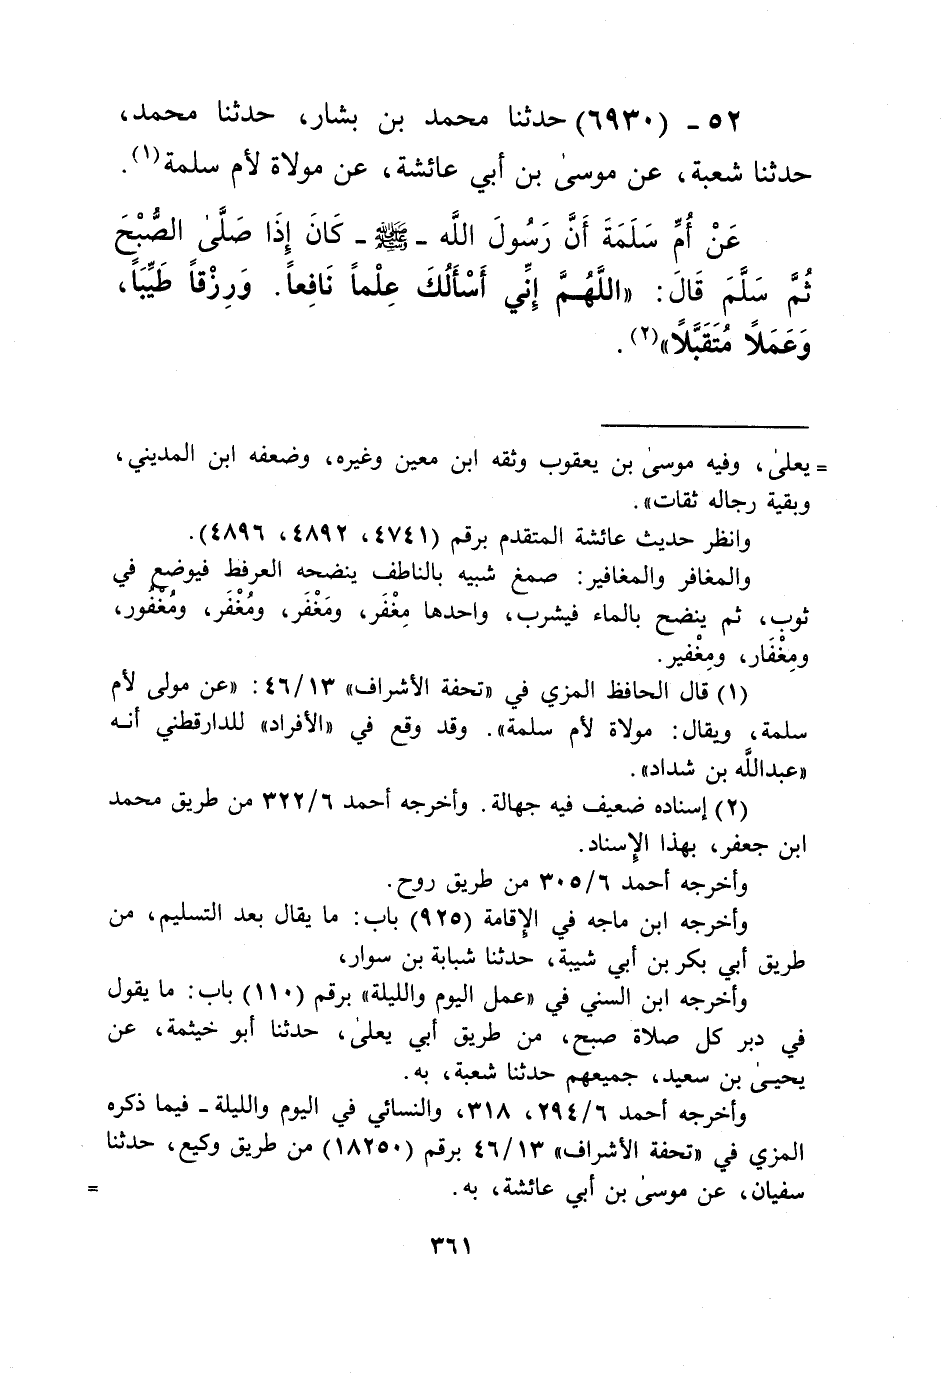 ٥٢ ـ (٦٩٣٠) حدثنا محمد بن بشار، حدثنا محمد،
حدثنا شعبة، عن موسىٰ بن أبي عائشة، عن مولاة لأم سلمة(١).
عَنْ أُمِّ سَلَمَةَ أَنَّ رَسُولَ اللَّه ـ ﷺ ـ كَانَ إِذَا صَلَّىٰ الصُّبْحَ
ثُمَّ سَلَّمَ قَالَ: «اللَّهُمَّ إِنِّي أَسْأَلُكَ عِلْماً نَافِعاً. وَرِزْقاً طَيِّبَاً،
وَعَمَلاً مُتَقَبَّلاً»(٢).
= يعلىٰ، وفيه موسىٰ بن يعقوب وثقه ابن معين وغيره، وضعفه ابن المديني،
وبقية رجاله ثقات».
وانظر حديث عائشة المتقدم برقم (٤٧٤١، ٤٨٩٢، ٤٨٩٦).
والمغافر والمغافير: صمغ شبيه بالناطف ينضحه العرفط فيوضع في
ثوب، ثم ينضح بالماء فيشرب، واحدها مِغْفَر، ومَغْفَر، ومُغْفَر، ومُغْفُور،
ومِغْفَار، ومِغْفير.
(١) قال الحافظ المزي في «تحفة الأشراف» ٤٦/١٣: «عن مولى لأم
سلمة، ويقال: مولاة لأم سلمة». وقد وقع في «الأفراد» للدارقطني أنه
«عبداللَّه بن شداد».
(٢) إسناده ضعيف فيه جهالة. وأخرجه أحمد ٣٢٢/٦ من طريق محمد
ابن جعفر، بهذا الإسناد.
وأخرجه أحمد ٣٠٥/٦ من طريق روح.
وأخرجه ابن ماجه في الإقامة (٩٢٥) باب: ما يقال بعد التسليم، من
طريق أبي بكر بن أبي شيبة، حدثنا شبابة بن سوار،
وأخرجه ابن السني في «عمل اليوم والليلة» برقم (١١٠) باب: ما يقول
في دبر كل صلاة صبح، من طريق أبي يعلىٰ، حدثنا أبو خيثمة، عن
يحيىٰ بن سعيد، جميعهم حدثنا شعبة، به.
وأخرجه أحمد ٢٩٤/٦، ٣١٨، والنسائي في اليوم والليلة ـ فيما ذكره
المزي في «تحفة الأشراف» ٤٦/١٣ برقم (١٨٢٥٠) من طريق وكيع، حدثنا
سفيان، عن موسىٰ بن أبي عائشة، به. =
٣٦١